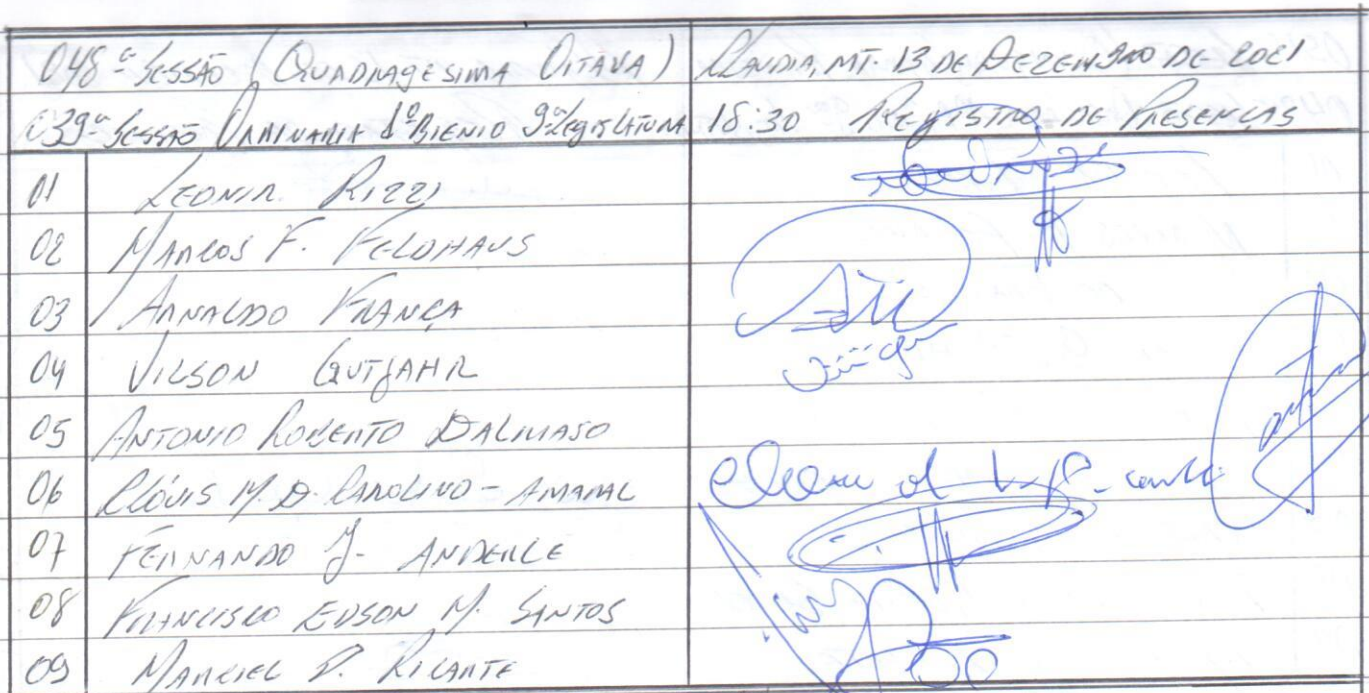 048ª Sessão (Quadragesima Oitava) Cláudia, MT. 13 de Dezembro de 2021
039ª Sessão Ordinaria 1º Bienio 9ª Legislatura 18:30 Registro de Presenças
01 Leonir Rizzi
02 Marcos F. Feldhaus
03 Arnaldo França
04 Vilson Gutjahr
05 Antonio Roberto Dalmaso
06 Clóvis M. D. Carolino - Amaral
07 Fernando J. Anderle
08 Francisco Edson M. Santos
09 Marciel P. Ricarte